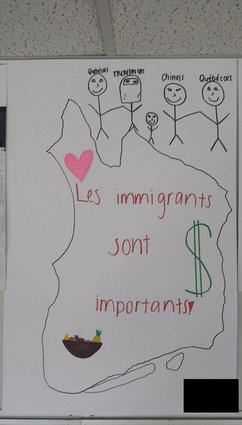 Québécois Musulman Chinois Québécois
Les immigrants
sont
importants!
$